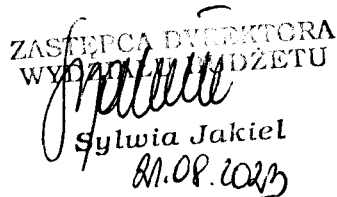 ZASTĘPCA DYREKTORA
WYDZIAŁU BUDŻETU
Sylwia Jakiel
21.08.2023